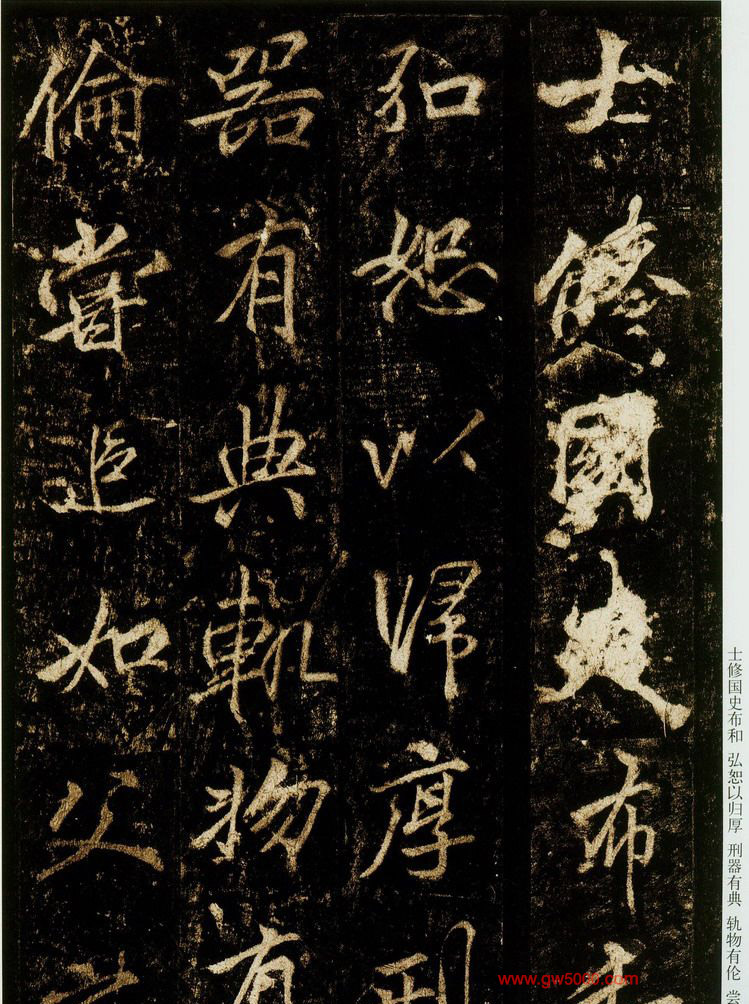 士脩國史布
弘恕以歸厚刑
器有典軌物有
倫嘗追如父
士修国史布和 弘恕以归厚 刑器有典 轨物有伦 尝
www.gw5000.com